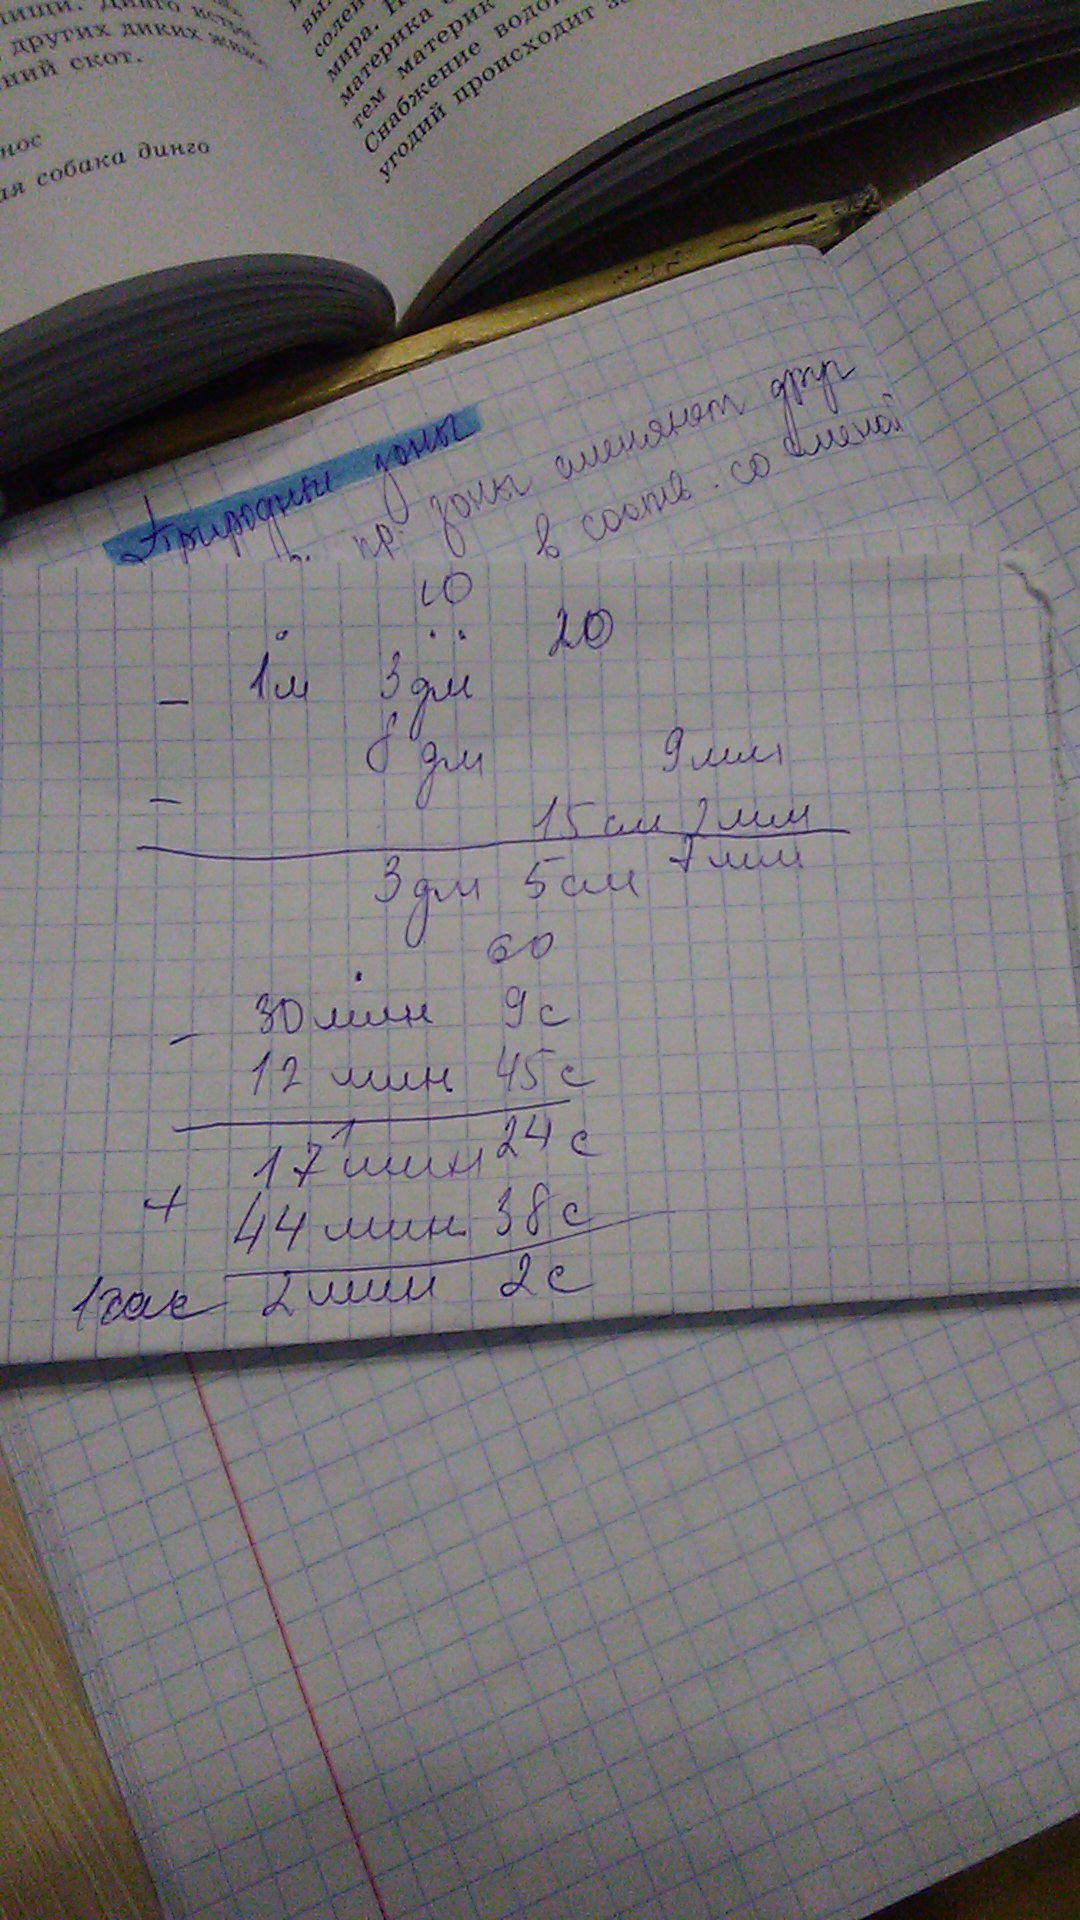 других диких
ний скот.
нос
ая собака динго
солен
мира.
материка
тем материк
Снабжение водой
угодий происходит за
Природные зоны
пр. зоны сменяют друг
в соотв. со сменой
10
20
- 1м 3дм
8 дм 9мм
- 15 см 2 мм
3дм 5см 7мм
60
- 30 мин 9с
12 мин 45с
1
17 мин 24 с
+ 44 мин 38 с
1час 2 мин 2с